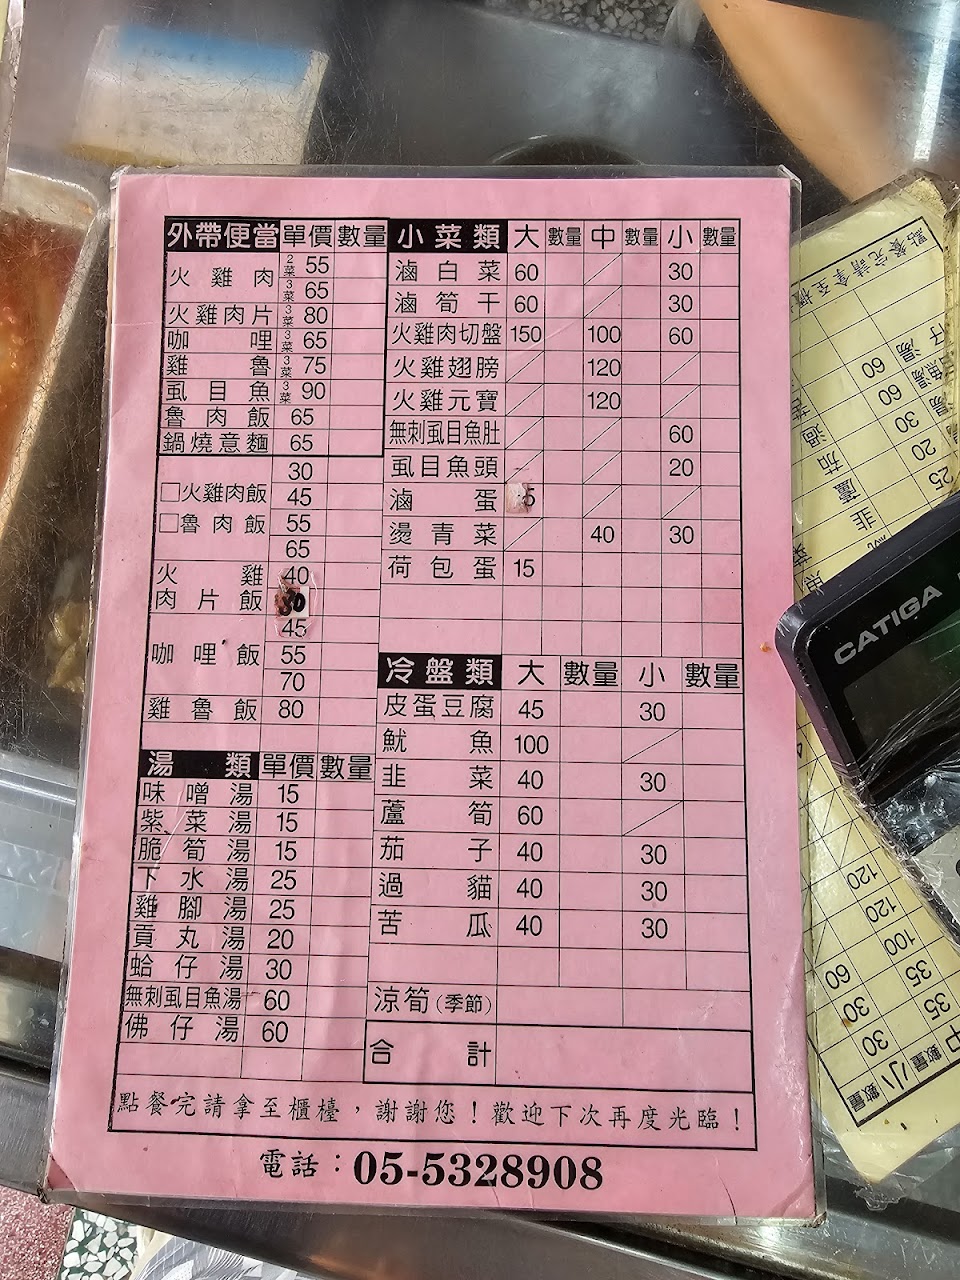 外帶便當 單價 數量
火雞肉 2菜 55
3菜 65
火雞肉片 3菜 80
咖哩 3菜 65
雞魯 3菜 75
虱目魚 3菜 90
魯肉飯 65
鍋燒意麵 65
30
□火雞肉飯 45
□魯肉飯 55
65
火雞肉片飯 40
80
45
咖哩飯 55
70
雞魯飯 80
湯類 單價 數量
味噌湯 15
紫菜湯 15
脆筍湯 15
下水湯 25
雞腳湯 25
貢丸湯 20
蛤仔湯 30
無刺虱目魚湯 60
佛仔湯 60
小菜類 大 數量 中 數量 小 數量
滷白菜 60 30
滷筍干 60 30
火雞肉切盤 150 100 60
火雞翅膀 120
火雞元寶 120
無刺虱目魚肚 60
虱目魚頭 20
滷蛋 5
燙青菜 40 30
荷包蛋 15
冷盤類 大 數量 小 數量
皮蛋豆腐 45 30
魷魚 100
韭菜 40 30
蘆筍 60
茄子 40 30
過貓 40 30
苦瓜 40 30
涼筍(季節)
合計
點餐完請拿至櫃檯，謝謝您！歡迎下次再度光臨！
電話：05-5328908
CATIGA
點餐完請拿至櫃
湯 60
魚湯 60
30
20
25
過
茄
蘆
韭
120
120
100 60
35 30
35 30
中 數量 小 數量